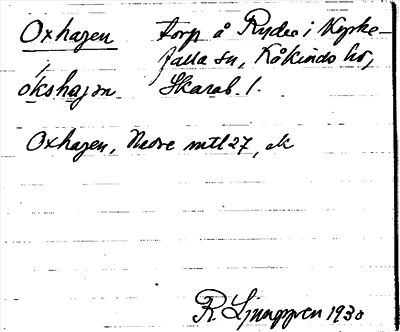 Oxhagen torp å Ryder i Kyrke-
falla sn, Kåkinds hd,
ókshagɒn Skarab. l.
Oxhagen, Nedre mtl 27, ek
R Ljunggren 1930